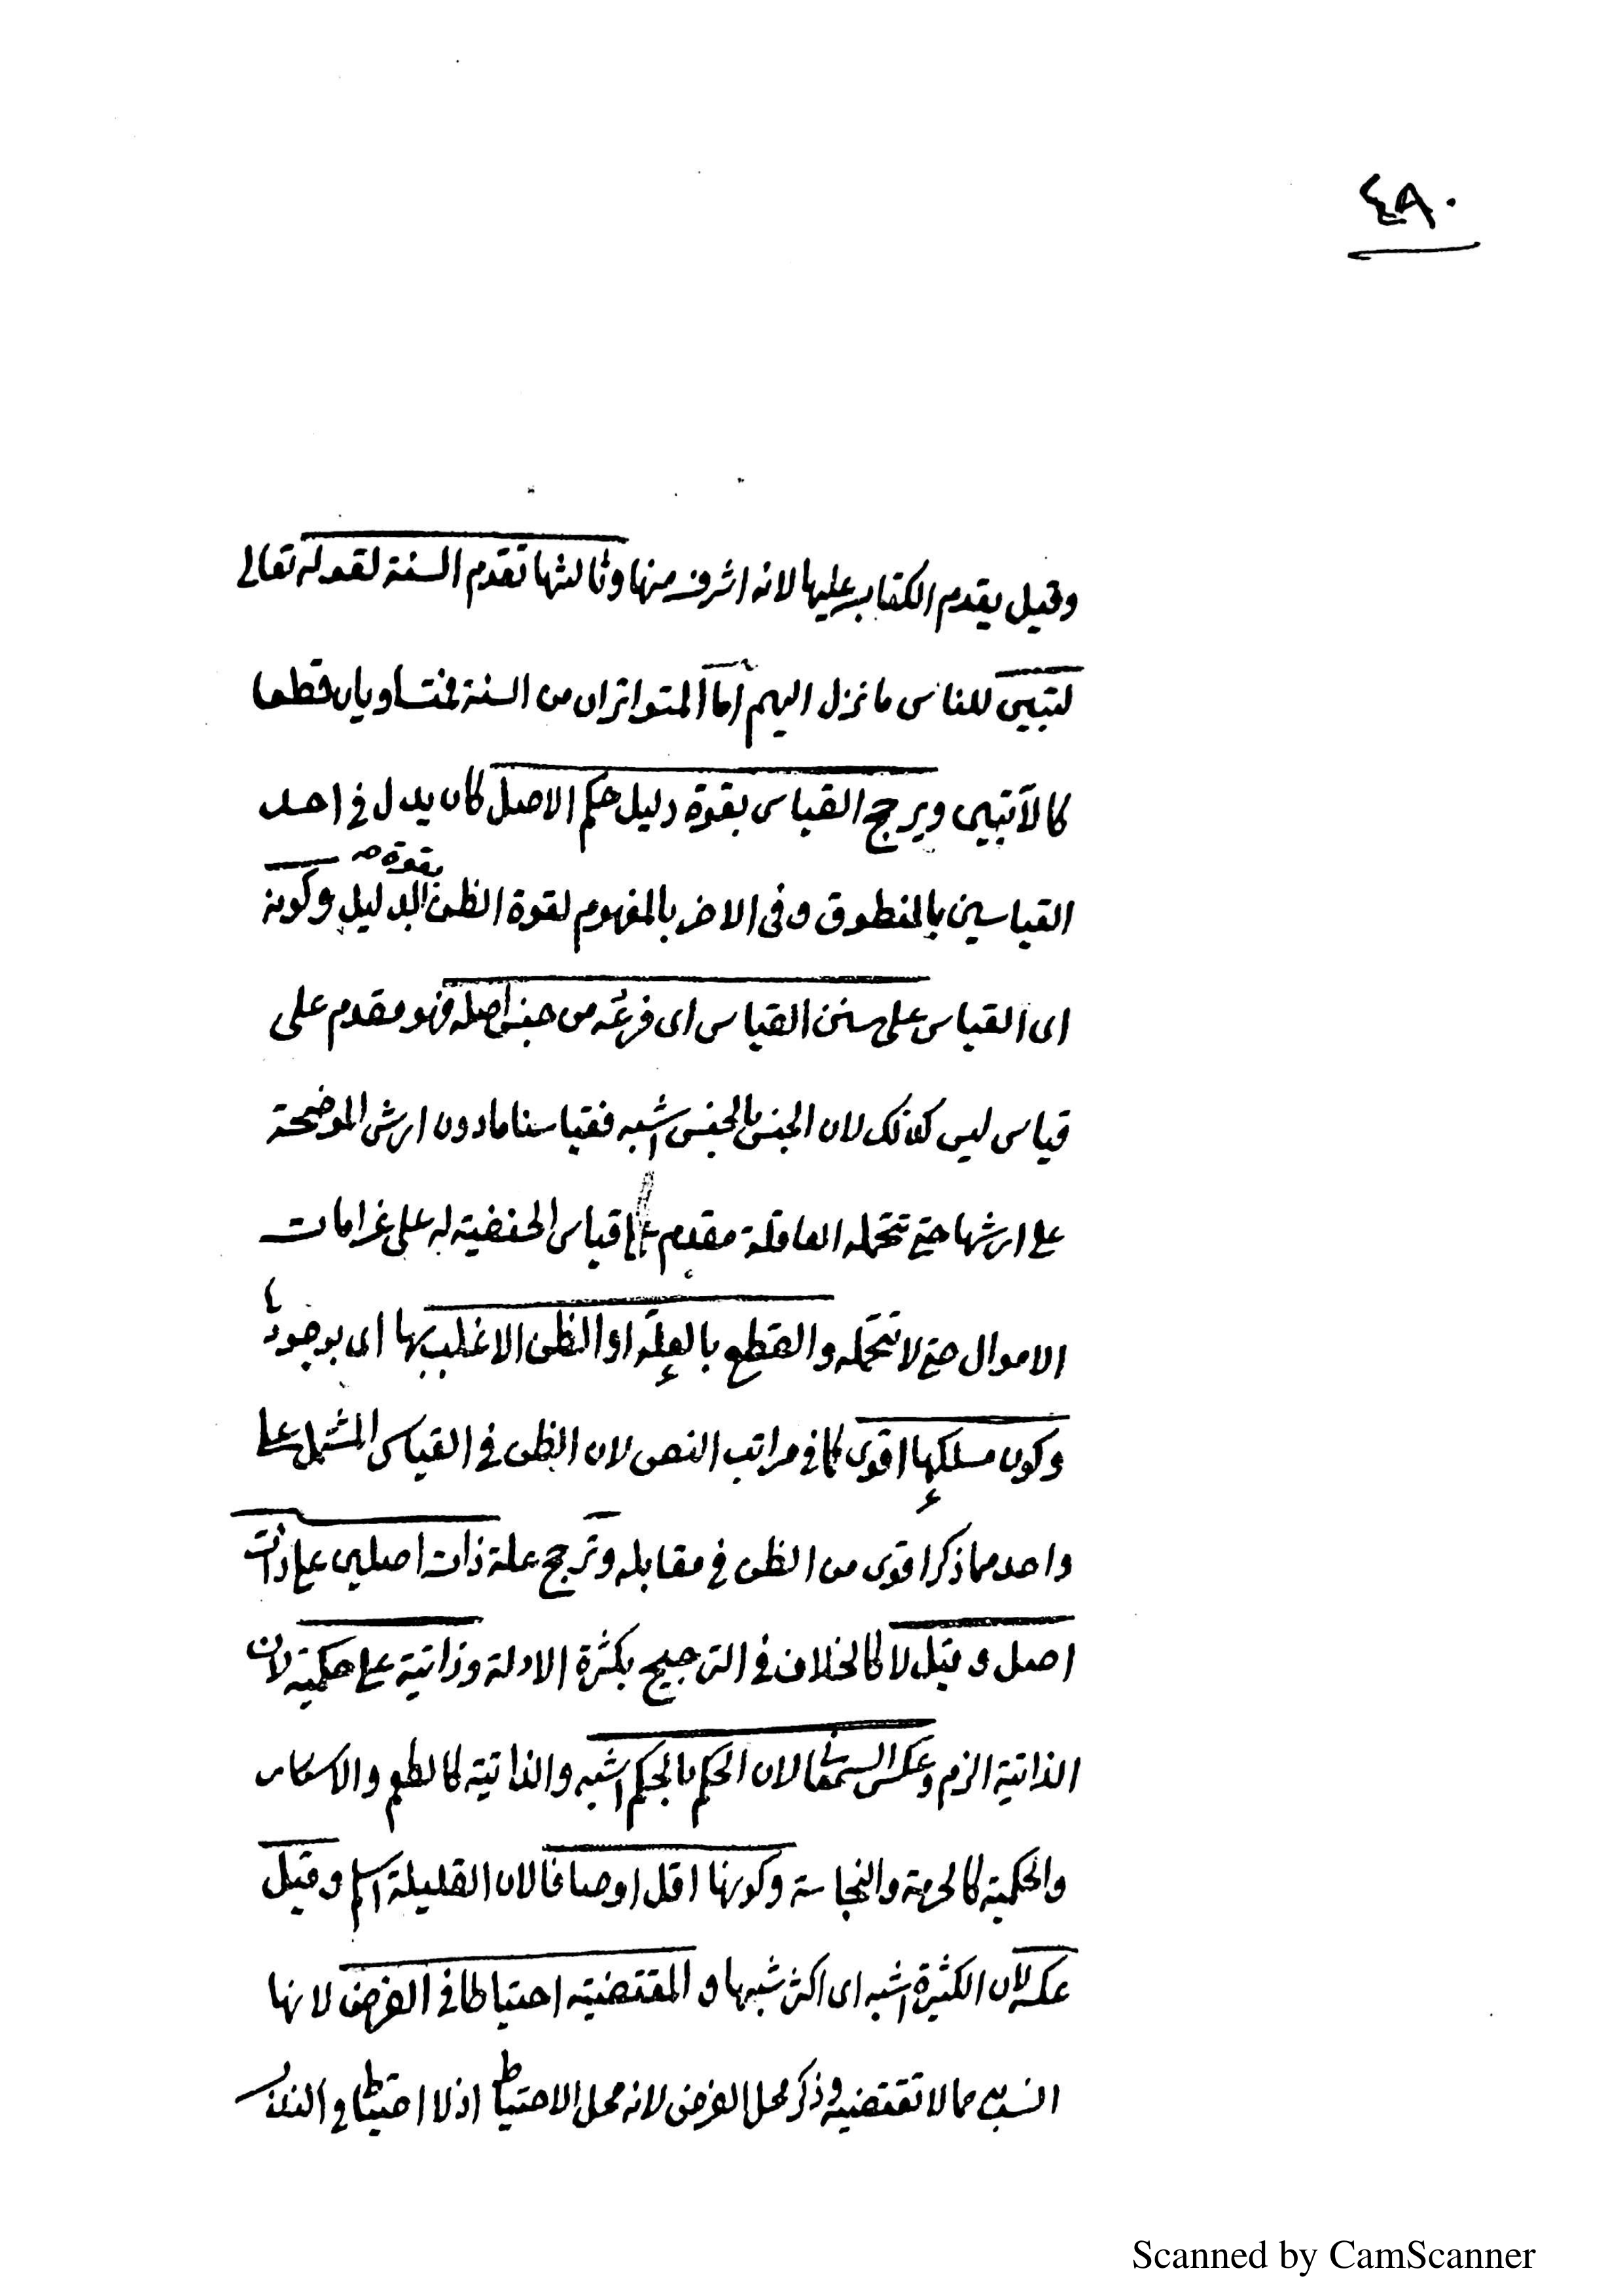 ٤٨٠
وقيل يقدم الكتاب عليها لانه اشرف منها وثالثها تقدم السنة لقوله تعالى
لتبين للناس ما نزل اليهم أما المتواتران من السنة فمتساويان قطعا
كالآيتين ويرجح القياس بقوة دليل حكم الاصل كان يدل في احد
القياسين بالمنطوق وفي الاخر بالمفهوم لقوة الظن بقوة الدليل وكونه
اى القياس على سنن القياس اى فرعه من جنس اصله فهو مقدم على
قياس ليس كذلك لان الجنس بالجنس اشبه فقياسنا ما دون ارش الموضحة
على ارشها حتى تتحمله العاقلة مقدم على قياس الحنفية له على غرامات
الاموال حتى لا تتحمله والقطع بالعلة او الظن الاغلب بها اى بوجودها
وكون مسلكها اقوى كما في مراتب النص لان الظن في القياس المشتمل على
واحد مما ذكر اقوى من الظن في مقابله وترجح علة ذات اصلين على ذات
اصل وقيل لا كالخلاف في الترجيح بكثرة الادلة وذاتية على حكمية لان
الذاتية الزم وعكس السمعاني لان الحكم بالحكم اشبه والذاتية كالطعم والاسكار
والحكمية كالحرمة والنجاسة وكونها اقل اوصافا لان القليلة اسلم وقيل
عكسه لان الكثيرة اشبه اى اكثر شبها و المقتضية احتياطا في الفرض لانها
انسب مما لا تقتضيه وذكر محل الفرض لانه محل الاحتياط اذ لا احتياط في النفل
Scanned by CamScanner